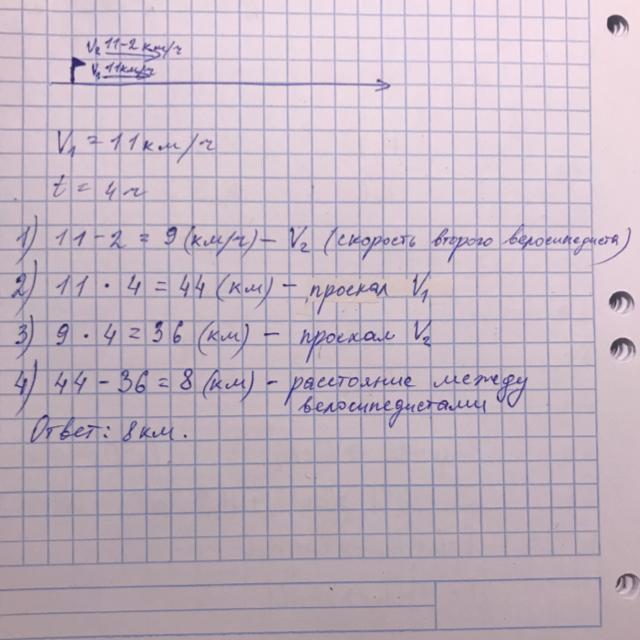 V₂ 11-2 км/ч
V₁ 11км/ч
V₁ = 11 км/ч
t = 4 ч
1) 11 - 2 = 9 (км/ч) - V₂ (скорость второго велосипедиста)
2) 11 · 4 = 44 (км) - проехал V₁
3) 9 · 4 = 36 (км) - проехал V₂
4) 44 - 36 = 8 (км) - расстояние между
велосипедистами
Ответ: 8 км.